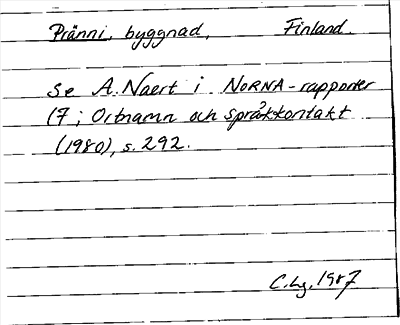 Pränni, byggnad, Finland.
Se A. Naert i NORNA-rapporter
17; Ortnamn och språkkontakt
(1980), s. 292.
C.Lg. 1987